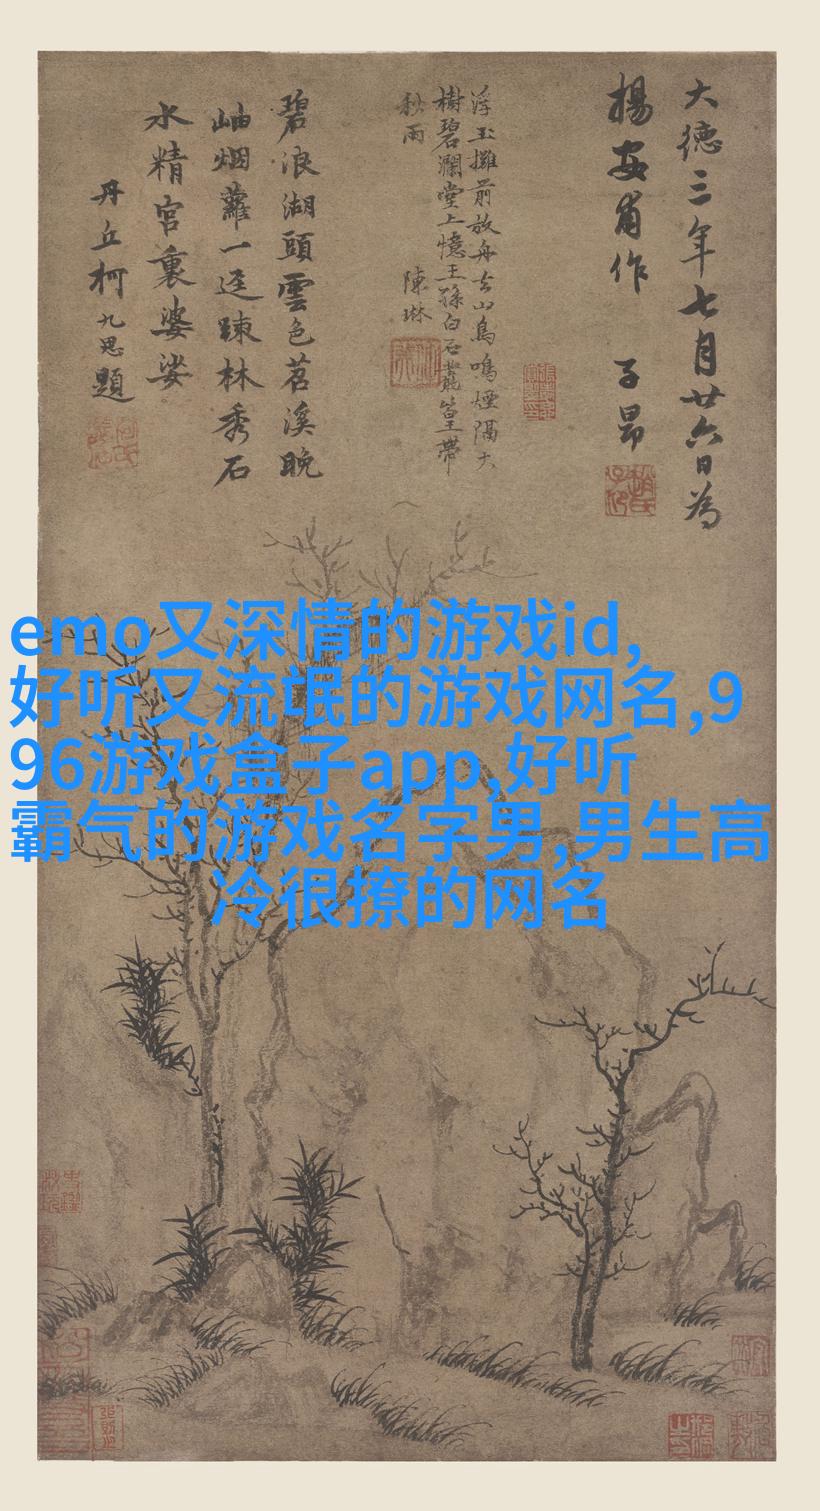 大德三年七月廿六日為
楊安甫作 子昂
浮玉攤前放舟去山鳥鳴煙隔大
樹碧瀾堂上憶王孫白石叢篁帶
秋雨 陳琳
碧浪湖頭雲色苕溪晚
岫烟蘿一逕踈林秀石
水精宮裏婆娑
丹丘柯九思題
emo又深情的游戏id,
好听又流氓的游戏网名,9
96游戏盒子app,好听
霸气的游戏名字男,男生高
冷很撩的网名